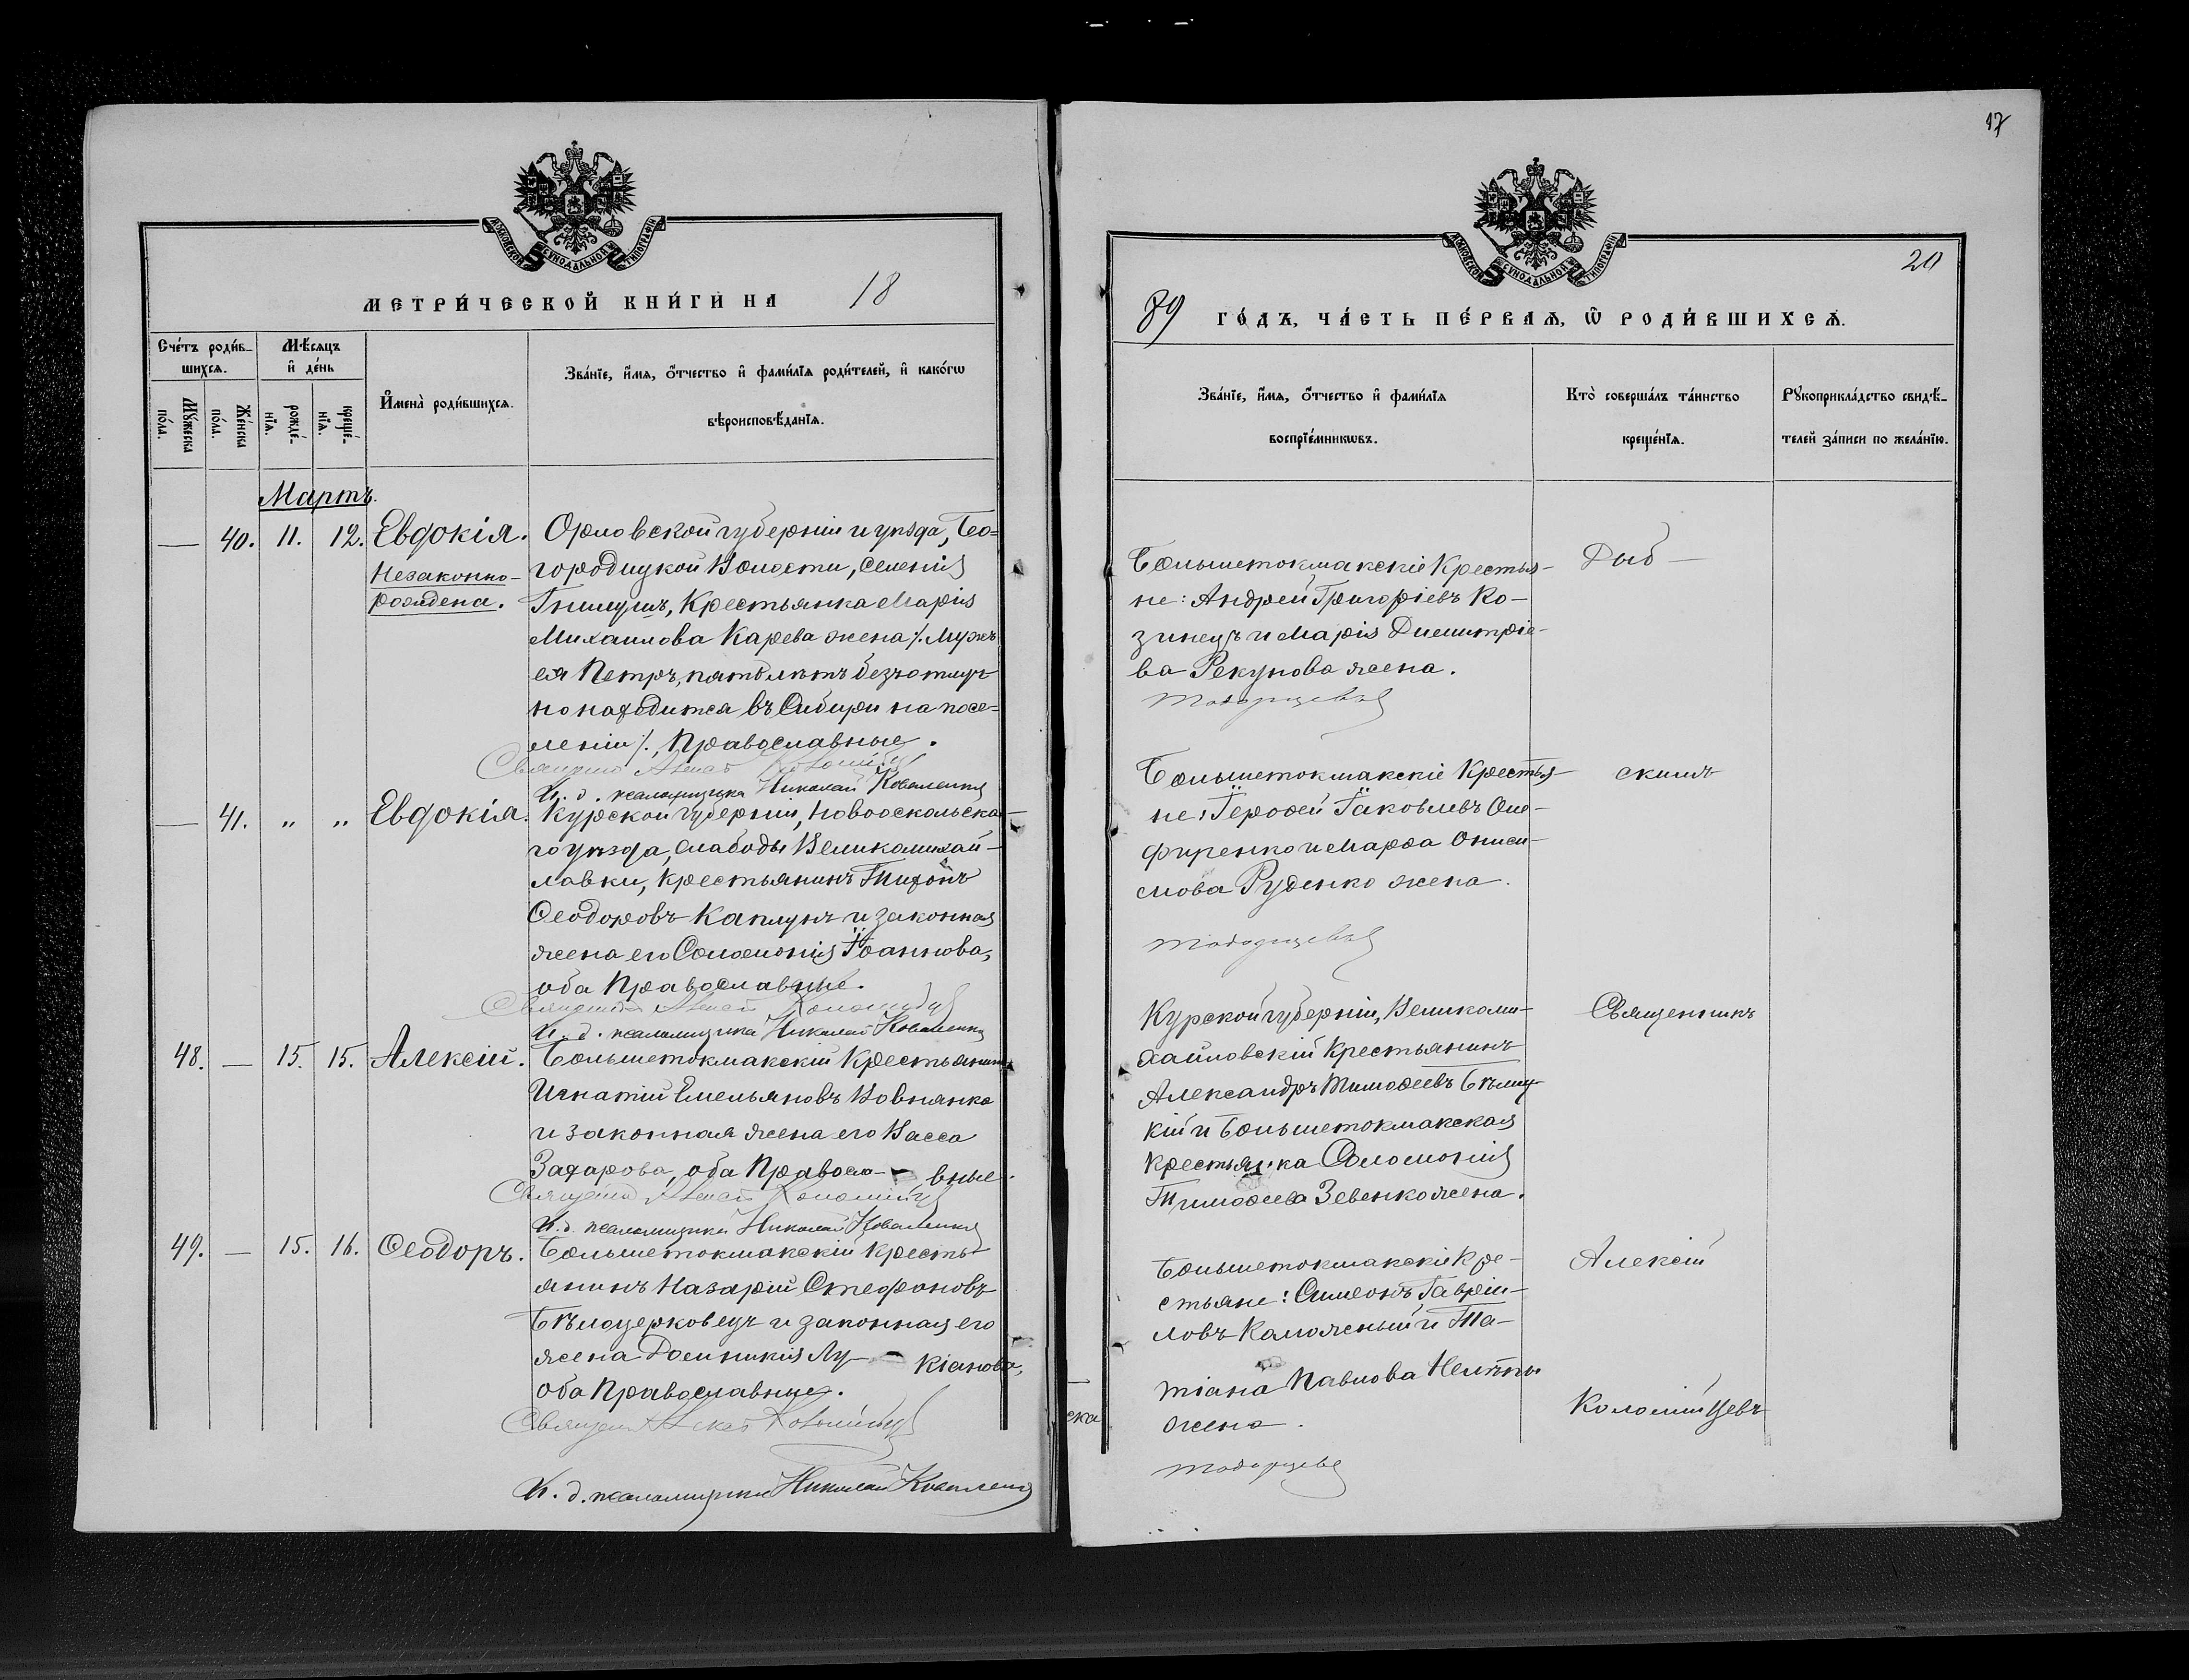 17
МОСКОВСКОЙ СѴНОДАЛЬНОЙ ТИПОГРАФІИ
МЕТРИ́ЧЕСКОЙ КНИ́ГИ НА 18
Сче́тъ роди́в-
шихсѧ.
Мѣ́сяцъ
и҆ де́нь
Мꙋ́жеска
по́ла.
Же́нска
по́ла.
рожде́-
нїѧ.
креще́-
нїѧ.
И҆мена̀ роди́вшихсѧ.
Зва́нїе, и҆́мѧ, ѻ҆́тчество и҆ фами́лїѧ роди́телей, и҆ како́гѡ
вѣроисповѣ́данїѧ.
Мартъ.
— 40. 11. 12. Евдокія.
Незаконно-
рождена.
Орловской губерніи и уѣзда, Бо-
городицкой Волости, Селенія
Гнилуш, Крестьянка Марія
Михаилова Карева жена /. Мужъ
ея Петръ, пять лѣтъ безъотлуч
но находится въ Сибири на посе-
леніи /., Православные.
И. д. псаломщика Николай Коваленко
— 41. " " Евдокія.
Курской Губерніи, Новооскольска-
го уѣзда, Слабоды Великомихай-
ловки, Крестьянинъ Тихонъ
Ѳеодоровъ Каплунъ и законная
жена его Соломонія Іоаннова,
оба Православные.
И. д. псаломщика Николай Коваленко
48. — 15. 15. Алексій.
Большетокмакскій Крестьянинъ
Игнатій Емельяновъ Вовнянко
и законная жена его Васса
Захарова, оба Правосла- вные.
И. д. псаломщика Николай Коваленко
49. — 15. 16. Ѳеодоръ.
Большетокмакскій Кресть-
янинъ Назарій Стефановъ
Бѣлоцерковецъ и законная его
жена Домникія Лу- кіанова,
оба Православные.
И. д. псаломщика Николай Коваленко
МОСКОВСКОЙ СѴНОДАЛЬНОЙ ТИПОГРАФІИ
20
89 ГО́ДЪ, ЧА́СТЬ ПЕ́РВАѦ, Ѡ҆ РОДИ́ВШИХСѦ.
Зва́нїе, и҆́мѧ, ѻ҆́тчество и҆ фами́лїѧ
воспрїе́мникѡвъ.
Кто̀ соверша́лъ та́инство
креще́нїѧ.
Рꙋкоприкла́дство свидѣ́-
телей за́писи по жела́нїю.
Большетокмакскіе Крестья-
не: Андрей Григоріевъ Ко-
зинецъ и Марія Димитріе-
ва Рекунова жена.
Большетокмакскіе Крестья-
не: Іероѳей Іаковлевъ Оне-
фиренко и Марѳа Ониси-
мова Руденко жена.
Курской губерніи, Великоми-
хайловскій Крестьянинъ
Александръ Тимоѳеевъ Бѣлиц-
кій и Большетокмакская
крестьянка Соломонія
Тимоѳеева Зевенко жена.
Большетокмакскіе Кре-
стьяне: Симеонъ Гавріи-
ловъ Каложный и Та-
тіана Павлова
жена.
Священникъ
Алексій
Коломійцевъ
ска